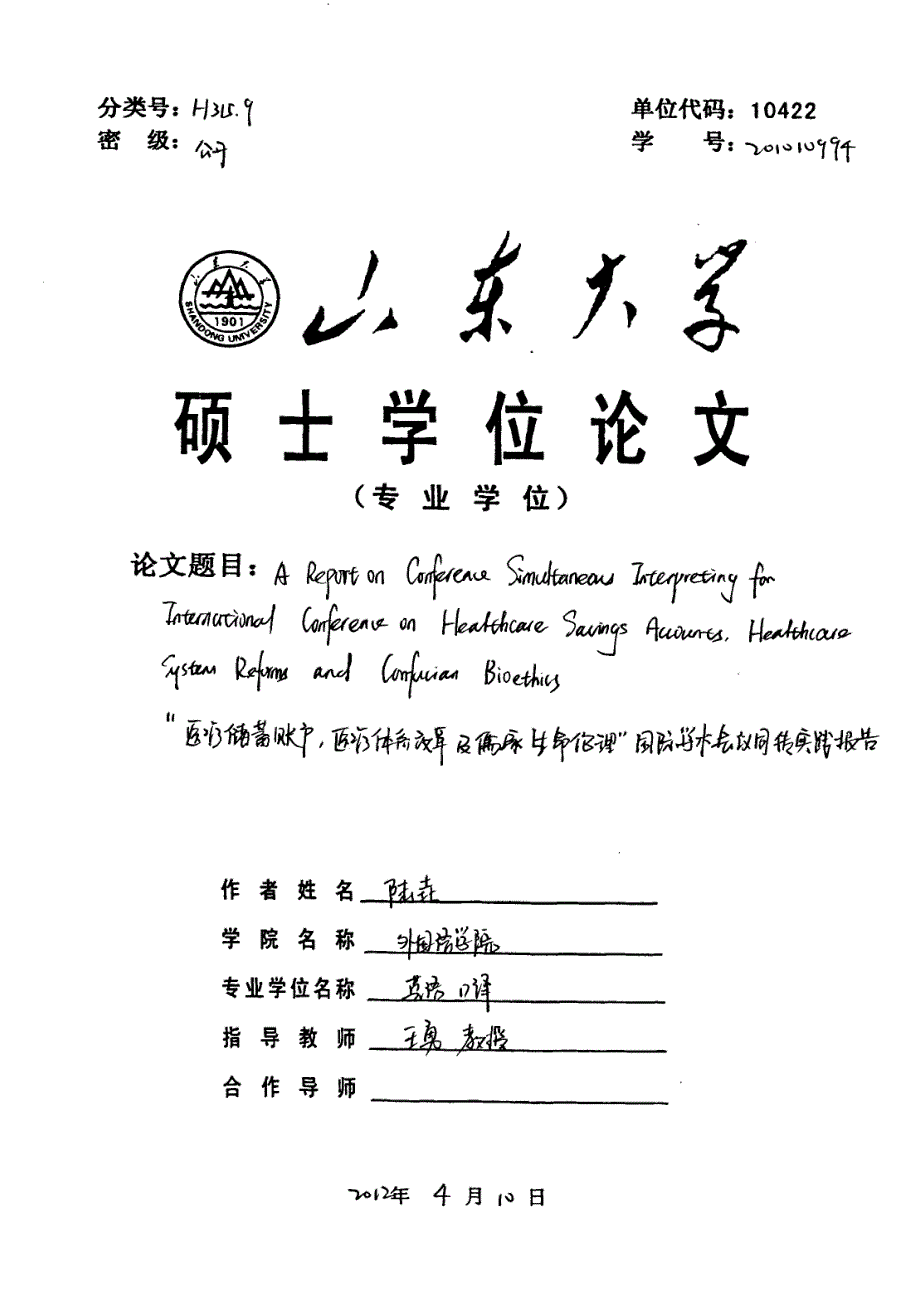 分类号：H315.9
单位代码：10422
密 级：公开
学 号：201010994
山东大学
SHANDONG UNIVERSITY
1901
山东大学
硕士学位论文
（专业学位）
论文题目：A Report on Conference Simultaneous Interpreting for
International Conference on Healthcare Savings Accounts, Healthcare
System Reforms and Confucian Bioethics
"医疗储蓄账户，医疗体系改革及儒家生命伦理"国际学术会议同传实践报告
作者姓名 陆垚
学院名称 外国语学院
专业学位名称 英语口译
指导教师 王勇 教授
合作导师
2012年 4 月 10 日